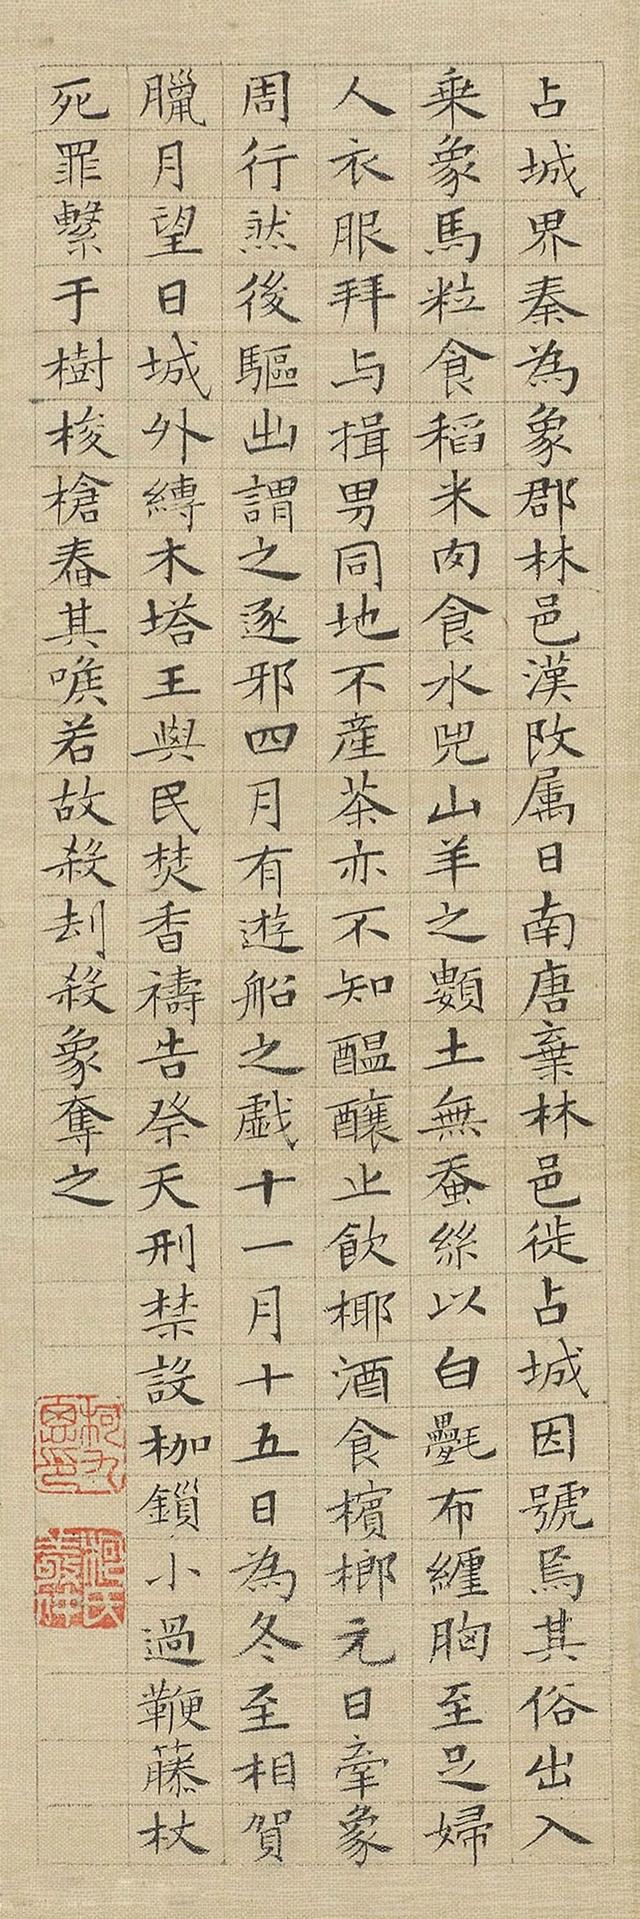 占城界秦為象郡林邑漢改属日南唐棄林邑徙占城因號焉其俗出入
乗象馬粒食稻米肉食水兕山羊之類土無蚕絲以白㲲布纏胸至足婦
人衣服拜与揖男同地不産茶亦不知醖釀止飲椰酒食檳榔元日牽象
周行然後驅出謂之逐邪四月有遊船之戯十一月十五日為冬至相賀
臘月望日城外縛木塔王與民焚香禱告祭天刑禁設枷鎖小過鞭藤杖
死罪繫于樹梭槍舂其喉若故殺刼殺象奪之